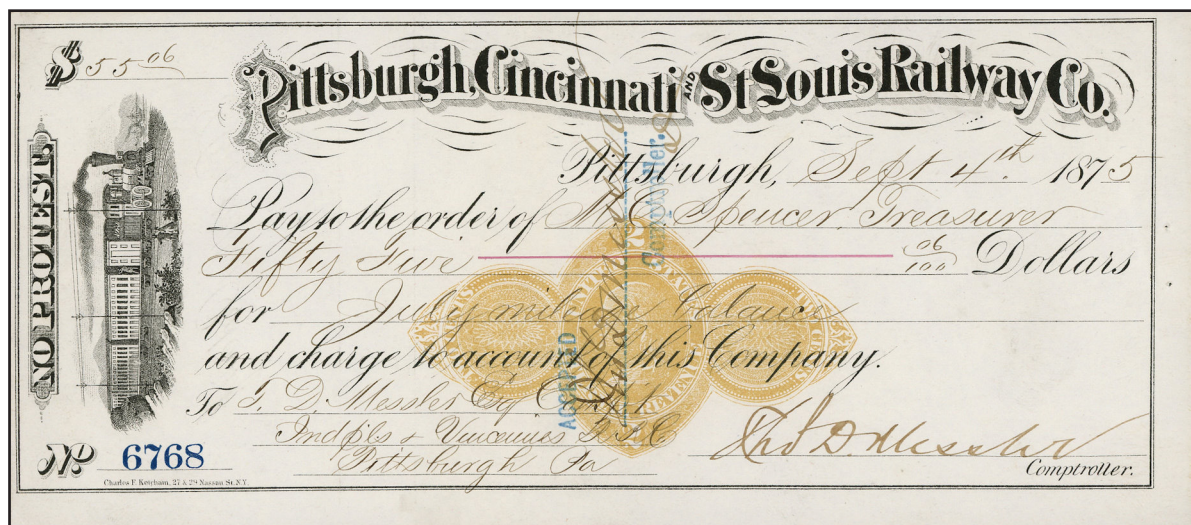 $ 55 06
Pittsburgh, Cincinnati AND St Louis Railway Co.
NO PROTEST.
Pittsburgh, Sept 4th. 1875
Pay to the order of M. C. Spencer Treasurer
Fifty Five 06/100 Dollars
for July mileage balance
and charge to account of this Company.
To T. D. Messler Esq Compt
Indpls & Vincennes R.R.C
Pittsburgh Pa
Thos D. Messler
Comptroller.
No 6768
Charles F. Ketcham, 27 & 29 Nassau St. N.Y.
ACCEPTED
Comptroller.